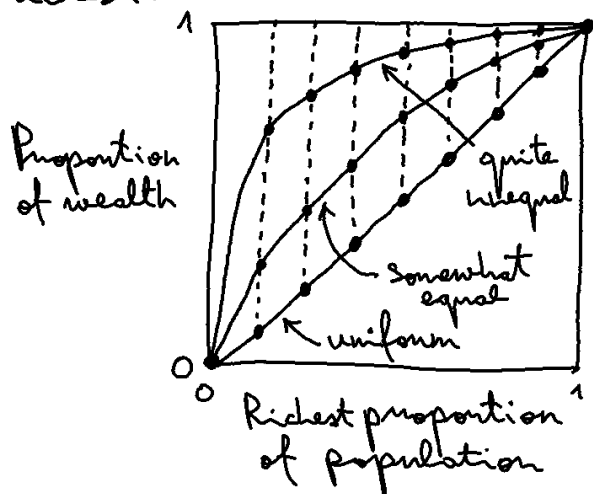 1
Proportion
of wealth
quite
unequal
somewhat
equal
uniform
0
0
1
Richest proportion
of population